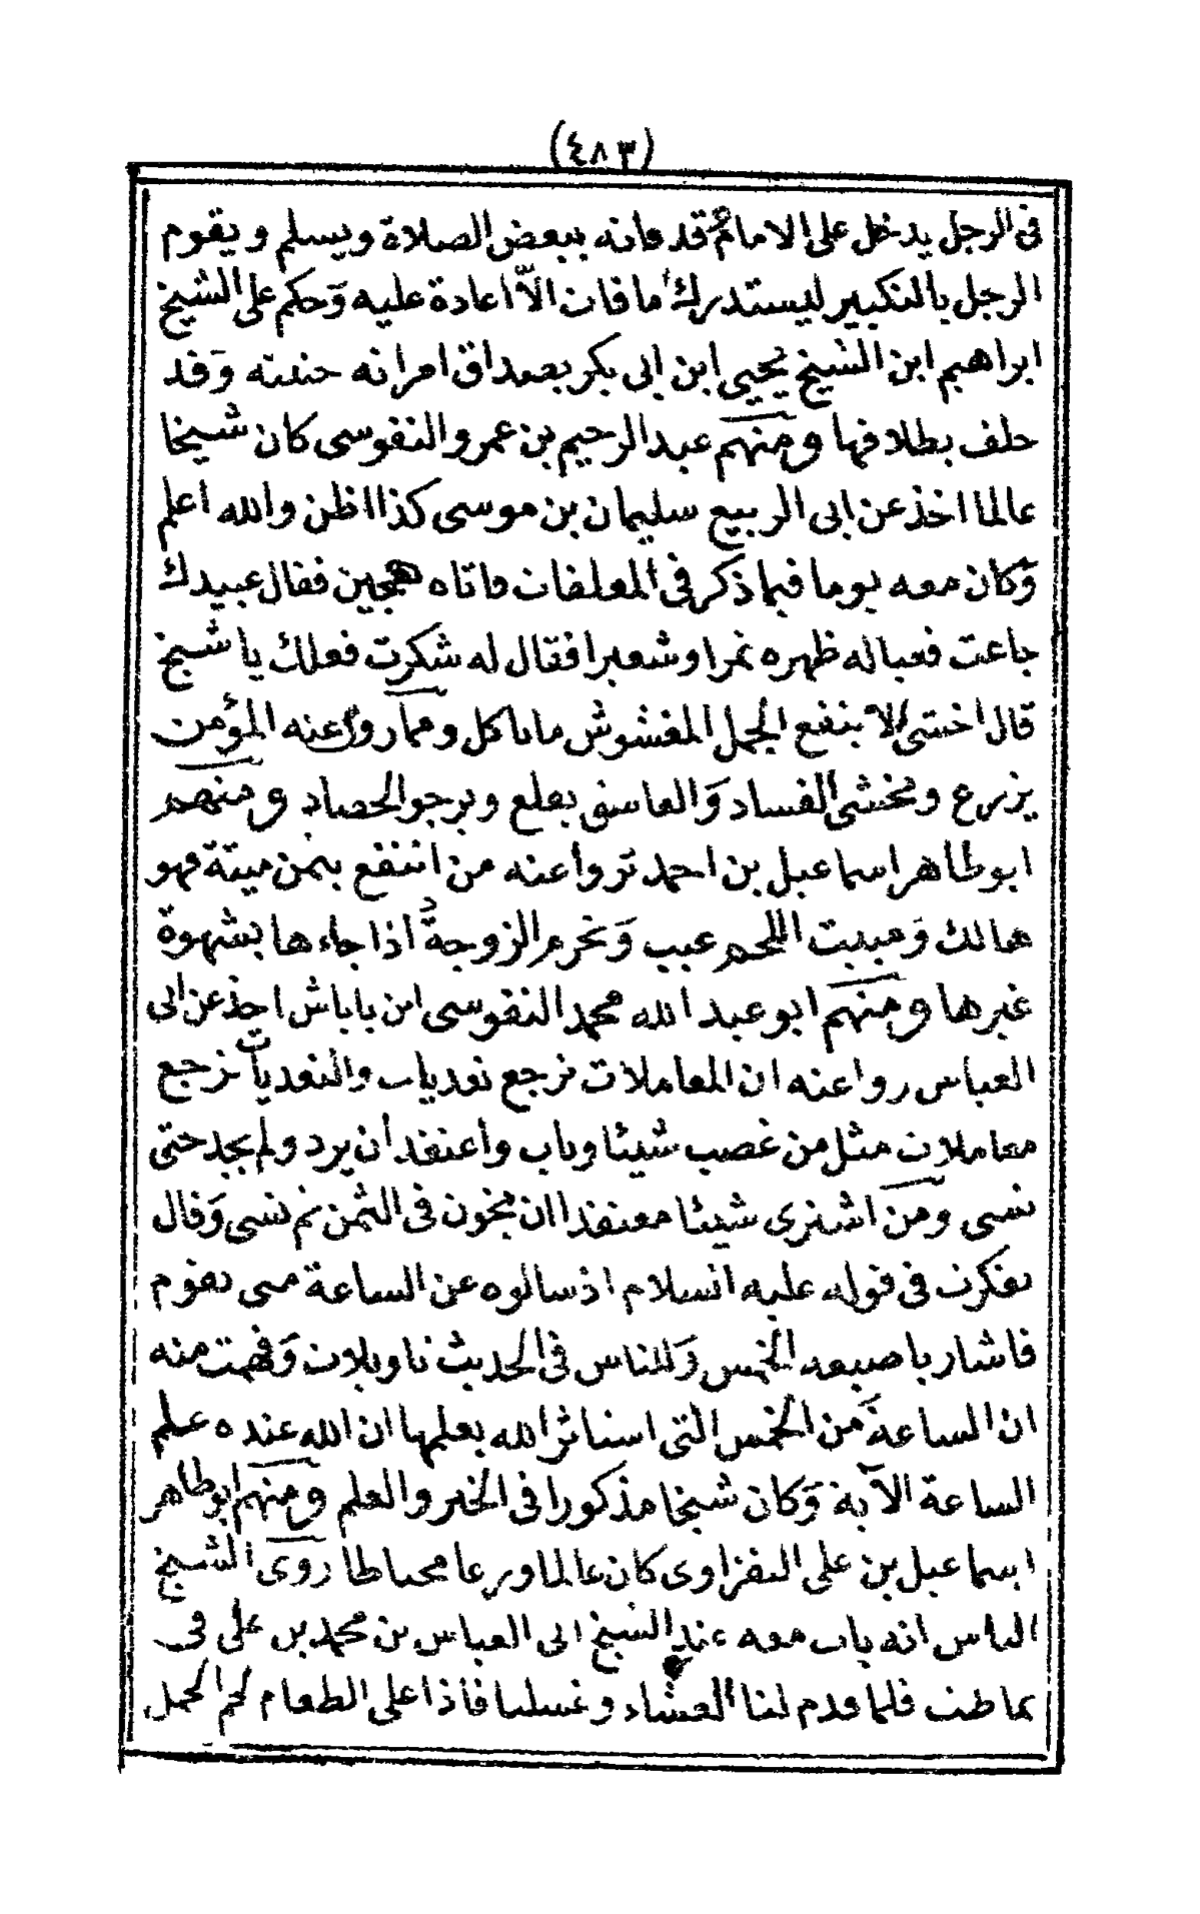 (٤٨٣)
فى الرجل يدخل على الامام قد فاته ببعض الصلاة ويسلم ويقوم
الرجل بالتكبير ليستدرك ما فات الا اعادة عليه وحكم على الشيخ
ابراهيم ابن الشيخ يحيى ابن ابى بكر بصداق امراته حنثته وقد
حلف بطلاقها ومنهم عبد الرحيم بن عمرو النفوسى كان شيخا
عالما اخذ عن ابى الربيع سليمان بن موسى كذا اظن والله اعلم
وكان معه يوما فيما ذكر فى المعلقات فاتاه هجين فقال عبيدك
جاعت فعباله ظهره تمرا وشعيرا فقال له شكرت فعلك يا شيخ
قال اخشى الا ينفع الجمل المغشوش ما ياكل ومما روا عنه المؤمن
يزرع ويخشى الفساد والفاسق يقلع ويرجو الحصاد ومنهم
ابو طاهر اسماعيل بن احمد تروا عنه من انتفع بثمن ميتة فهو
هالك ومبيت اللحم عيب وتحرم الزوجة اذا جاءها بشهوة
غيرها ومنهم ابو عبد الله محمد النفوسى ابن باباش اخذ عن ابى
العباس روا عنه ان المعاملات ترجع تعديات والتعديات ترجع
معاملات مثل من غصب شيئا وتاب واعتقد ان يرد ولم يجد حتى
نسى ومن اشترى شيئا معتقدا ان يخون فى الثمن ثم نسى وقال
تفكرت فى قوله عليه السلام اذ سالوه عن الساعة متى تقوم
فاشار باصبعه الخمس وللناس فى الحديث تاويلات وفهمت منه
ان الساعة من الخمس التى استاثر الله بعلمها ان الله عنده علم
الساعة الآية وكان شيخا مذكورا فى الخير والعلم ومنهم ابو طاهر
اسماعيل بن على النفزاوى كان عالما ورعا محتاطا روى الشيخ
الياس انه بات معه عند الشيخ ابى العباس بن محمد بن على فى
تماطت فلما قدم لنا العشاء وغسلنا فاذا على الطعام لحم الجمل